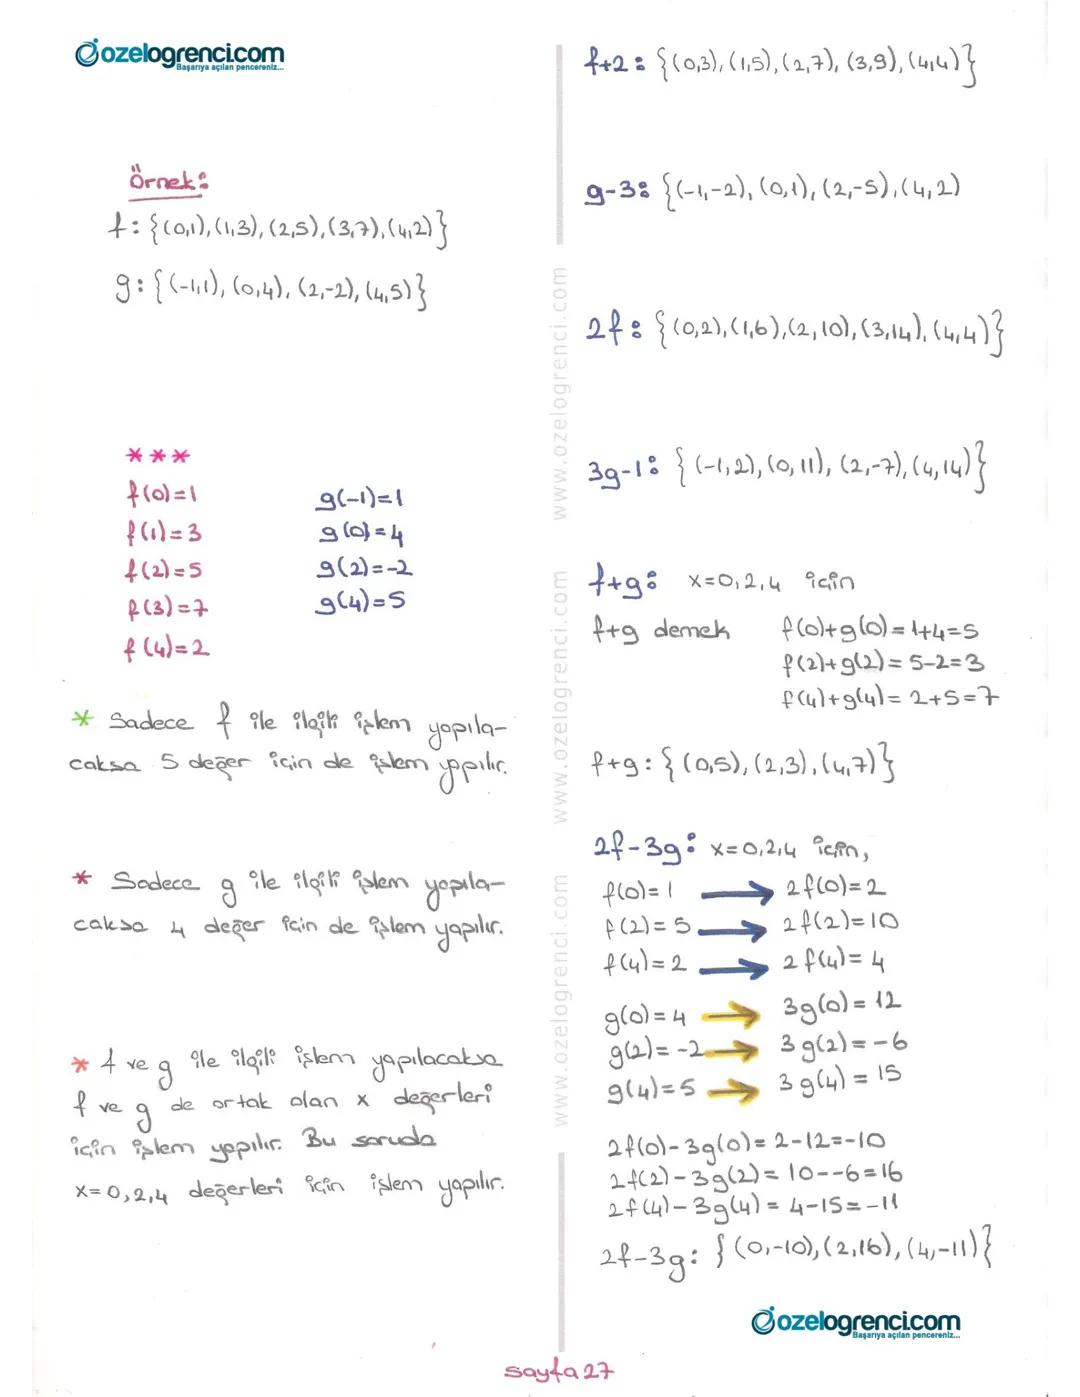 ozelogrenci.com
Başarıya açılan pencereniz...
Örnek:
f: {(0,1),(1,3),(2,5),(3,7),(4,2)}
g: {(-1,1),(0,4),(2,-2),(4,5)}
***
f(0)=1 g(-1)=1
f(1)=3 g(0)=4
f(2)=5 g(2)=-2
f(3)=7 g(4)=5
f(4)=2
* Sadece f ile ilgili işlem yapıla-
caksa 5 değer için de işlem yapılır.
* Sadece g ile ilgili işlem yapıla-
caksa 4 değer için de işlem yapılır.
* f ve g ile ilgili işlem yapılacaksa
f ve g de ortak olan x değerleri
için işlem yapılır. Bu soruda
x=0,2,4 değerleri için işlem yapılır.
www.ozelogrenci.com www.ozelogrenci.com www.ozelogrenci.com
f+2: {(0,3),(1,5),(2,7),(3,9),(4,4)}
g-3: {(-1,-2),(0,1),(2,-5),(4,2)
2f: {(0,2),(1,6),(2,10),(3,14),(4,4)}
3g-1: {(-1,2),(0,11),(2,-7),(4,14)}
f+g: x=0,2,4 için
f+g demek f(0)+g(0)=1+4=5
f(2)+g(2)=5-2=3
f(4)+g(4)=2+5=7
f+g: {(0,5),(2,3),(4,7)}
2f-3g: x=0,2,4 için,
f(0)=1 → 2f(0)=2
f(2)=5 → 2f(2)=10
f(4)=2 → 2f(4)=4
g(0)=4 → 3g(0)=12
g(2)=-2 → 3g(2)=-6
g(4)=5 → 3g(4)=15
2f(0)-3g(0)=2-12=-10
2f(2)-3g(2)=10--6=16
2f(4)-3g(4)=4-15=-11
2f-3g: {(0,-10),(2,16),(4,-11)}
ozelogrenci.com
Başarıya açılan pencereniz...
sayfa 27